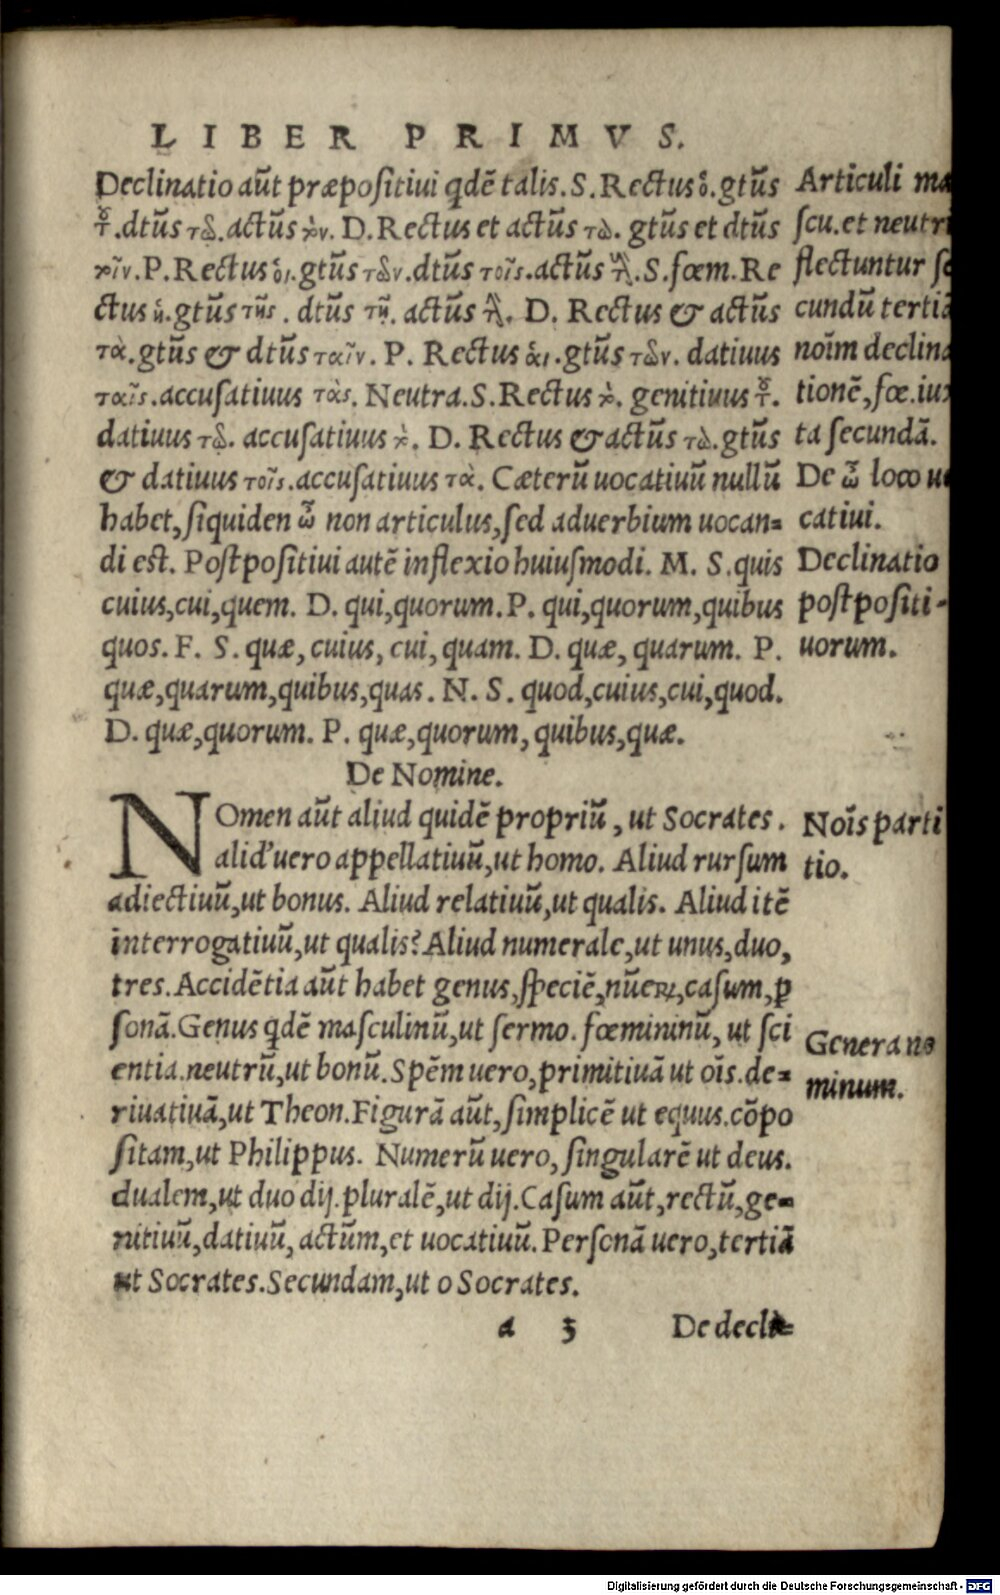 LIBER PRIMVS.
Declinatio aũt præpositiui qdẽ talis. S. Rectus ὁ. gtũs
τοῦ. dtũs τῷ. actũs τὸν. D. Rectus et actũs τὼ. gtũs et dtũs
τοῖν. P. Rectus οἱ. gtũs τῶν. dtũs τοῖς. actũs τοὺς. S. fœm. Re
ctus ἡ. gtũs τῆς. dtũs τῇ. actũs τὴν. D. Rectus & actũs
τὰ. gtũs & dtũs ταῖν. P. Rectus αἱ. gtũs τῶν. datiuus
ταῖς. accusatiuus τὰς. Neutra. S. Rectus τὸ. genitiuus τοῦ.
datiuus τῷ. accusatiuus τὸ. D. Rectus & actũs τὼ. gtũs
& datiuus τοῖς. accusatiuus τὰ. Cæterũ uocatiuũ nullũ
habet, siquiden ὦ non articulus, sed aduerbium uocan=
di est. Postpositiui autẽ inflexio huiusmodi. M. S. quis
cuius, cui, quem. D. qui, quorum. P. qui, quorum, quibus
quos. F. S. quæ, cuius, cui, quam. D. quæ, quarum. P.
quæ, quarum, quibus, quas. N. S. quod, cuius, cui, quod.
D. quæ, quorum. P. quæ, quorum, quibus, quæ.
Articuli ma
scu. et neutri
flectuntur se
cundũ tertiã
noĩm declina
tionẽ, fœ. iux
ta secundã.
De ὦ loco uo
catiui.
Declinatio
postpositi-
uorum.
De Nomine.
NOmen aũt aliud quidẽ propriũ, ut Socrates.
alid' uero appellatiuũ, ut homo. Aliud rursum
adiectiuũ, ut bonus. Aliud relatiuũ, ut qualis. Aliud itẽ
interrogatiuũ, ut qualis? Aliud numerale, ut unus, duo,
tres. Accidẽtia aũt habet genus, speciẽ, nũeꝝ, casum, ꝑ
sonã. Genus qdẽ masculinũ, ut sermo. fœmininũ, ut sci
entia. neutrũ, ut bonũ. Spẽm uero, primitiuã ut oĩs. de=
riuatiuã, ut Theon. Figurã aũt, simplicẽ ut equus. cõpo
sitam, ut Philippus. Numerũ uero, singularẽ ut deus.
dualem, ut duo dij. pluralẽ, ut dij. Casum aũt, rectũ, ge=
nitiuũ, datiuũ, actũm, et uocatiuũ. Personã uero, tertiã
ut Socrates. Secundam, ut o Socrates.
Noĩs parti
tio.
Genera no
minum.
a 3 De decli=
Digitalisierung gefördert durch die Deutsche Forschungsgemeinschaft - DFG